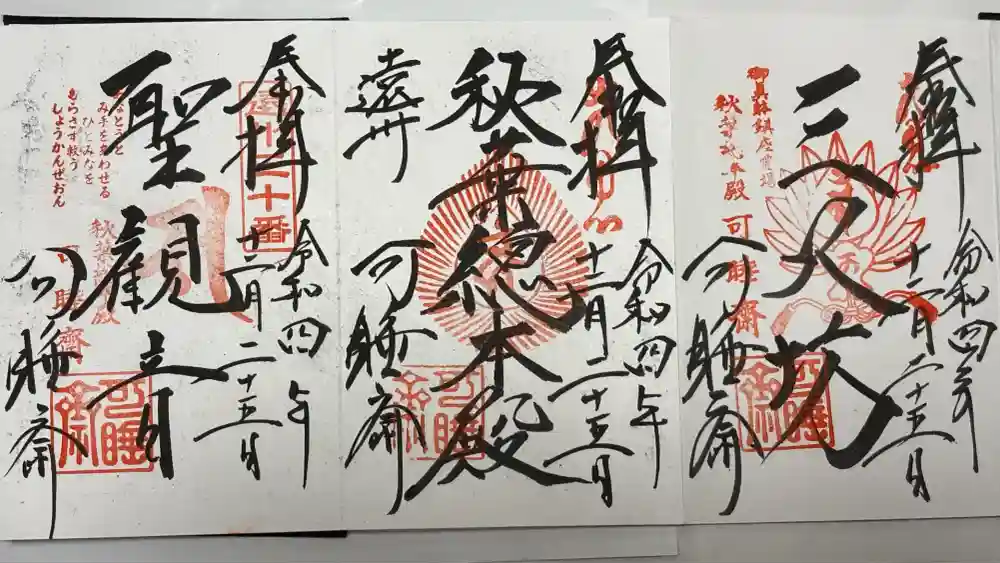 奉拝
令和四年
十二月二十五日
三尺坊
可睡斎
御真躰鎮座道場
秋葉総本殿
可睡齋
奉拝
令和四年
十二月二十五日
秋葉總本殿
遠州
可睡斎
奉拝
令和四年
十二月二十五日
聖観音
可睡斎
みなとうと
み手を合わせる
ひとみなを
もらさず救う
しょうかんぜおん
秋葉総本殿
可睡齋